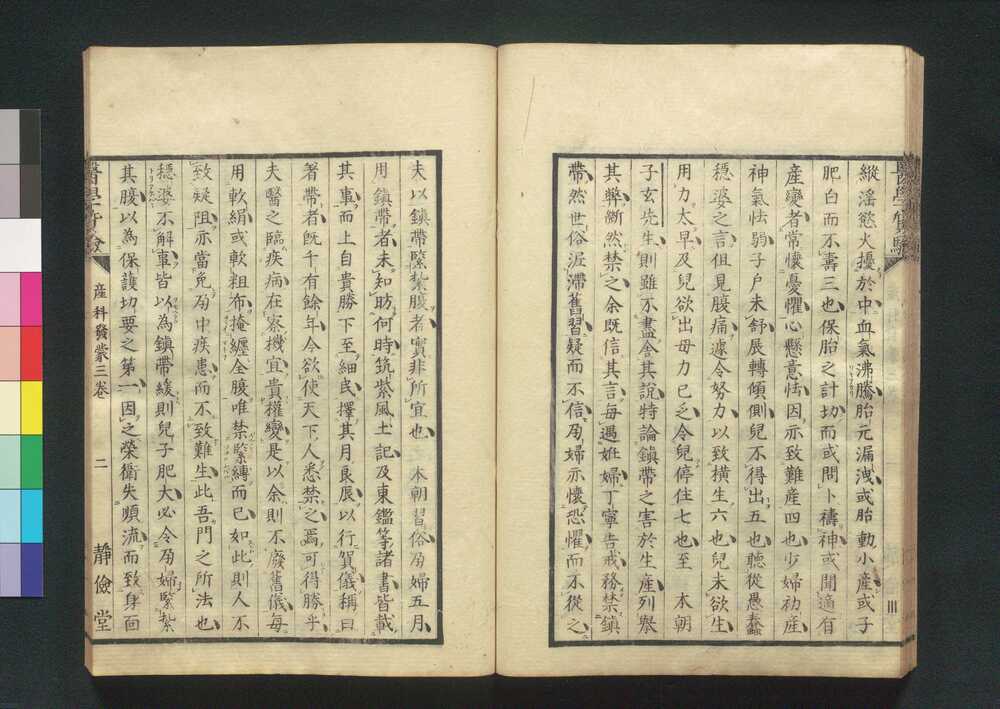 縱淫慾火擾於中血氣沸騰胎元漏洩或胎動小産或子
肥白而不壽三也保胎之計切而或問卜禱神或聞適有
産變者常懷憂懼心懸意怯因亦致難産四也少婦初産
神氣怯弱子户未舒展轉傾側兒不得出五也聽從愚蠢
穩婆之言但見腹痛遽令努力以致横生六也兒未欲生
用力太早及兒欲出母力已乏令兒停住七也至 本朝
子玄先生則雖不盡舍其說特論鎮帶之害於生産列舉
其弊斷然禁之余既信其言每遇妊婦丁寧告戒務禁鎮
帶然世俗泥滯舊習疑而不信孕婦亦懷恐懼而不從之
夫以鎮帶緊紮腹者實非所宜也 本朝習俗孕婦五月
用鎮帶者未知昉何時筑紫風土記及東鑑等諸書皆載
其事而上自貴勝下至細民擇其月良辰以行賀儀稱曰
著帶者既千有餘年今欲使天下人悉禁之焉可得勝乎
夫醫之臨疾病在察機宜貴權變是以余則不廢舊儀每
用軟絹或軟粗布掩纏全腹唯禁緊縛而已如此則人不
致疑阻亦當免孕中疾患而不致難生此吾門之所法也
穩婆不解事皆以為鎮帶緩則兒子肥大必令孕婦緊紮
其腹以為保護切要之第一因之榮衛失順流而致身面
産科發蒙三卷
二
靜儉堂